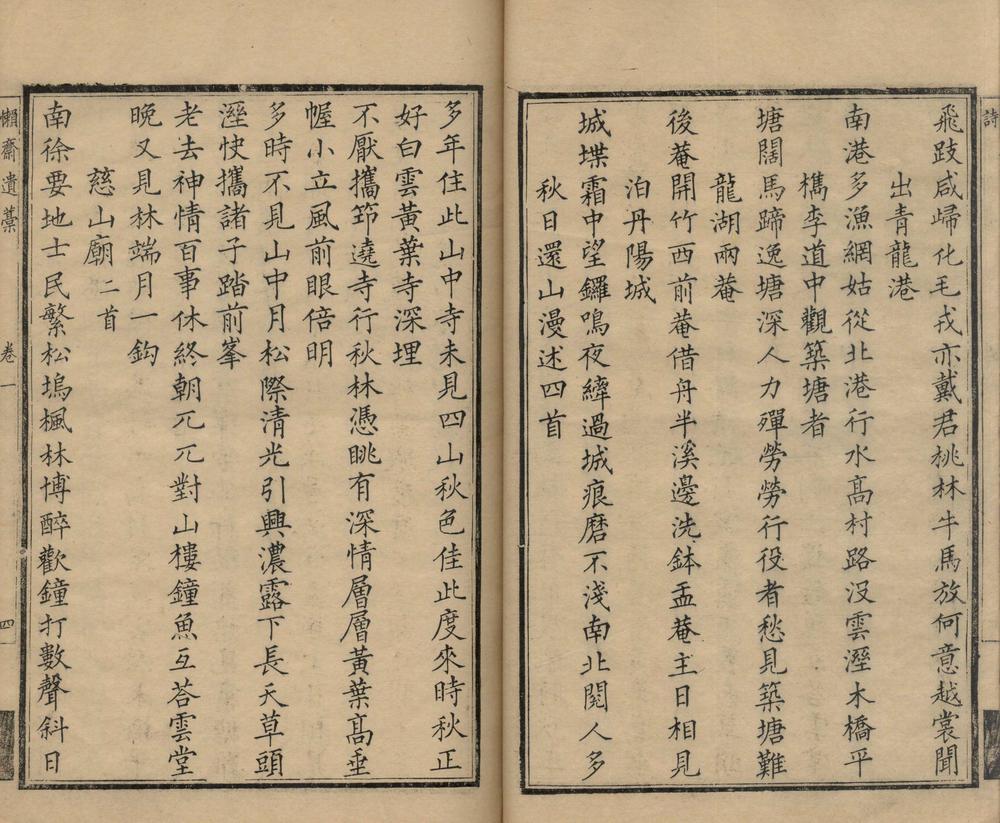 詩
飛跂咸歸化毛戎亦戴君桃林牛馬放何意越裳聞
出青龍港
南港多漁網姑從北港行水高村路沒雲溼木橋平
檇李道中觀築塘者
塘闊馬蹄逸塘深人力殫勞勞行役者愁見築塘難
龍湖兩菴
後菴開竹西前菴借舟半溪邊洗鉢盂菴主日相見
泊丹陽城
城堞霜中望鑼鳴夜繂過城痕磨不淺南北閱人多
秋日還山漫述四首
多年住此山中寺未見四山秋色佳此度來時秋正
好白雲黃葉寺深埋
不厭攜筇遶寺行秋林憑眺有深情層層黃葉高垂
幄小立風前眼倍明
多時不見山中月松際清光引興濃露下長天草頭
溼快攜諸子踏前峯
老去神情百事休終朝兀兀對山樓鐘魚互荅雲堂
晚又見林端月一鈎
慈山廟二首
南徐要地士民繁松塢楓林博醉歡鐘打數聲斜日
懶齋遺藁 卷一 四